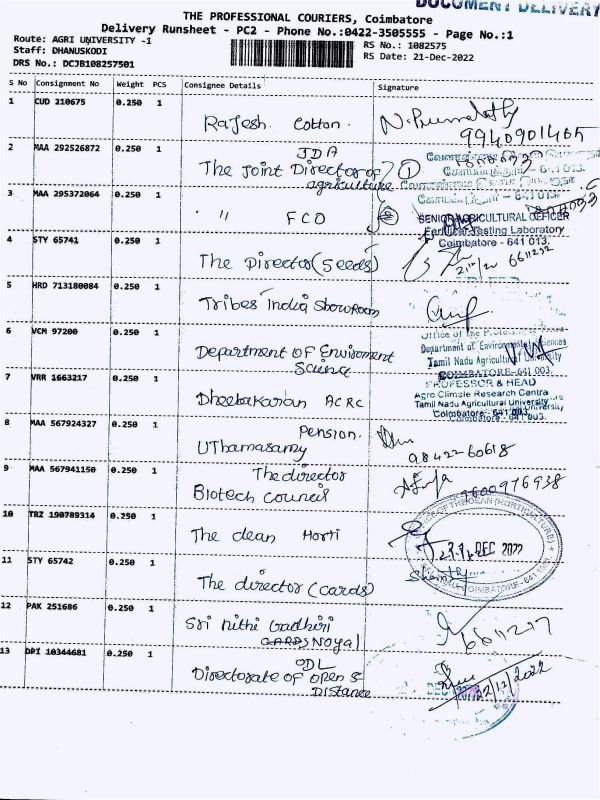 DOCUMENT DELIVERY
THE PROFESSIONAL COURIERS, Coimbatore
Delivery Runsheet - PC2 - Phone No.:0422-3505555 - Page No.:1
Route: AGRI UNIVERSITY -1
Staff: DHANUSKODI
DRS No.: DCJB108257501
RS No.: 1082575
RS Date: 21-Dec-2022
S No Consignment No Weight PCS Consignee Details Signature
1 CUD 210675 0.250 1 Rajesh Cotton.
9940901465
2 MAA 292526872 0.250 1 JDA
The Joint Director of
agriculture
1
3 MAA 295372064 0.250 1 " FCO 2
641 013.
SENIOR AGRICULTURAL OFFICER
Fertilizer Testing Laboratory
Coimbatore - 641 013.
4 STY 65741 0.250 1 The Director (Seeds)
6611232
5 HRD 713180084 0.250 1 Tribes India Showroom
6 VCM 97200 0.250 1 Department of Enviroment
Science
Office of the
Department of Environmental Sciences
Tamil Nadu Agricultural University
COIMBATORE-641 003.
7 VRR 1663217 0.250 1 Dheebakaran ACRC
PROFESSOR & HEAD
Agro Climate Research Centre
Tamil Nadu Agricultural University
Coimbatore - 641 003.
8 MAA 567924327 0.250 1 Pension.
UThamasamy
9842260618
9 MAA 567941150 0.250 1 The director
Biotech Council
9600976938
10 TRZ 190789314 0.250 1 The dean Horti
OFFICE OF THE DEAN (HORTICULTURE)
DEC 2022
COIMBATORE - 641
11 STY 65742 0.250 1 The director (cards)
12 PAK 251686 0.250 1 Sri nithi
Noyal
6611217
13 DPI 10344681 0.250 1 ODL
Directorate of open &
Distance
DEC
22/12/2022